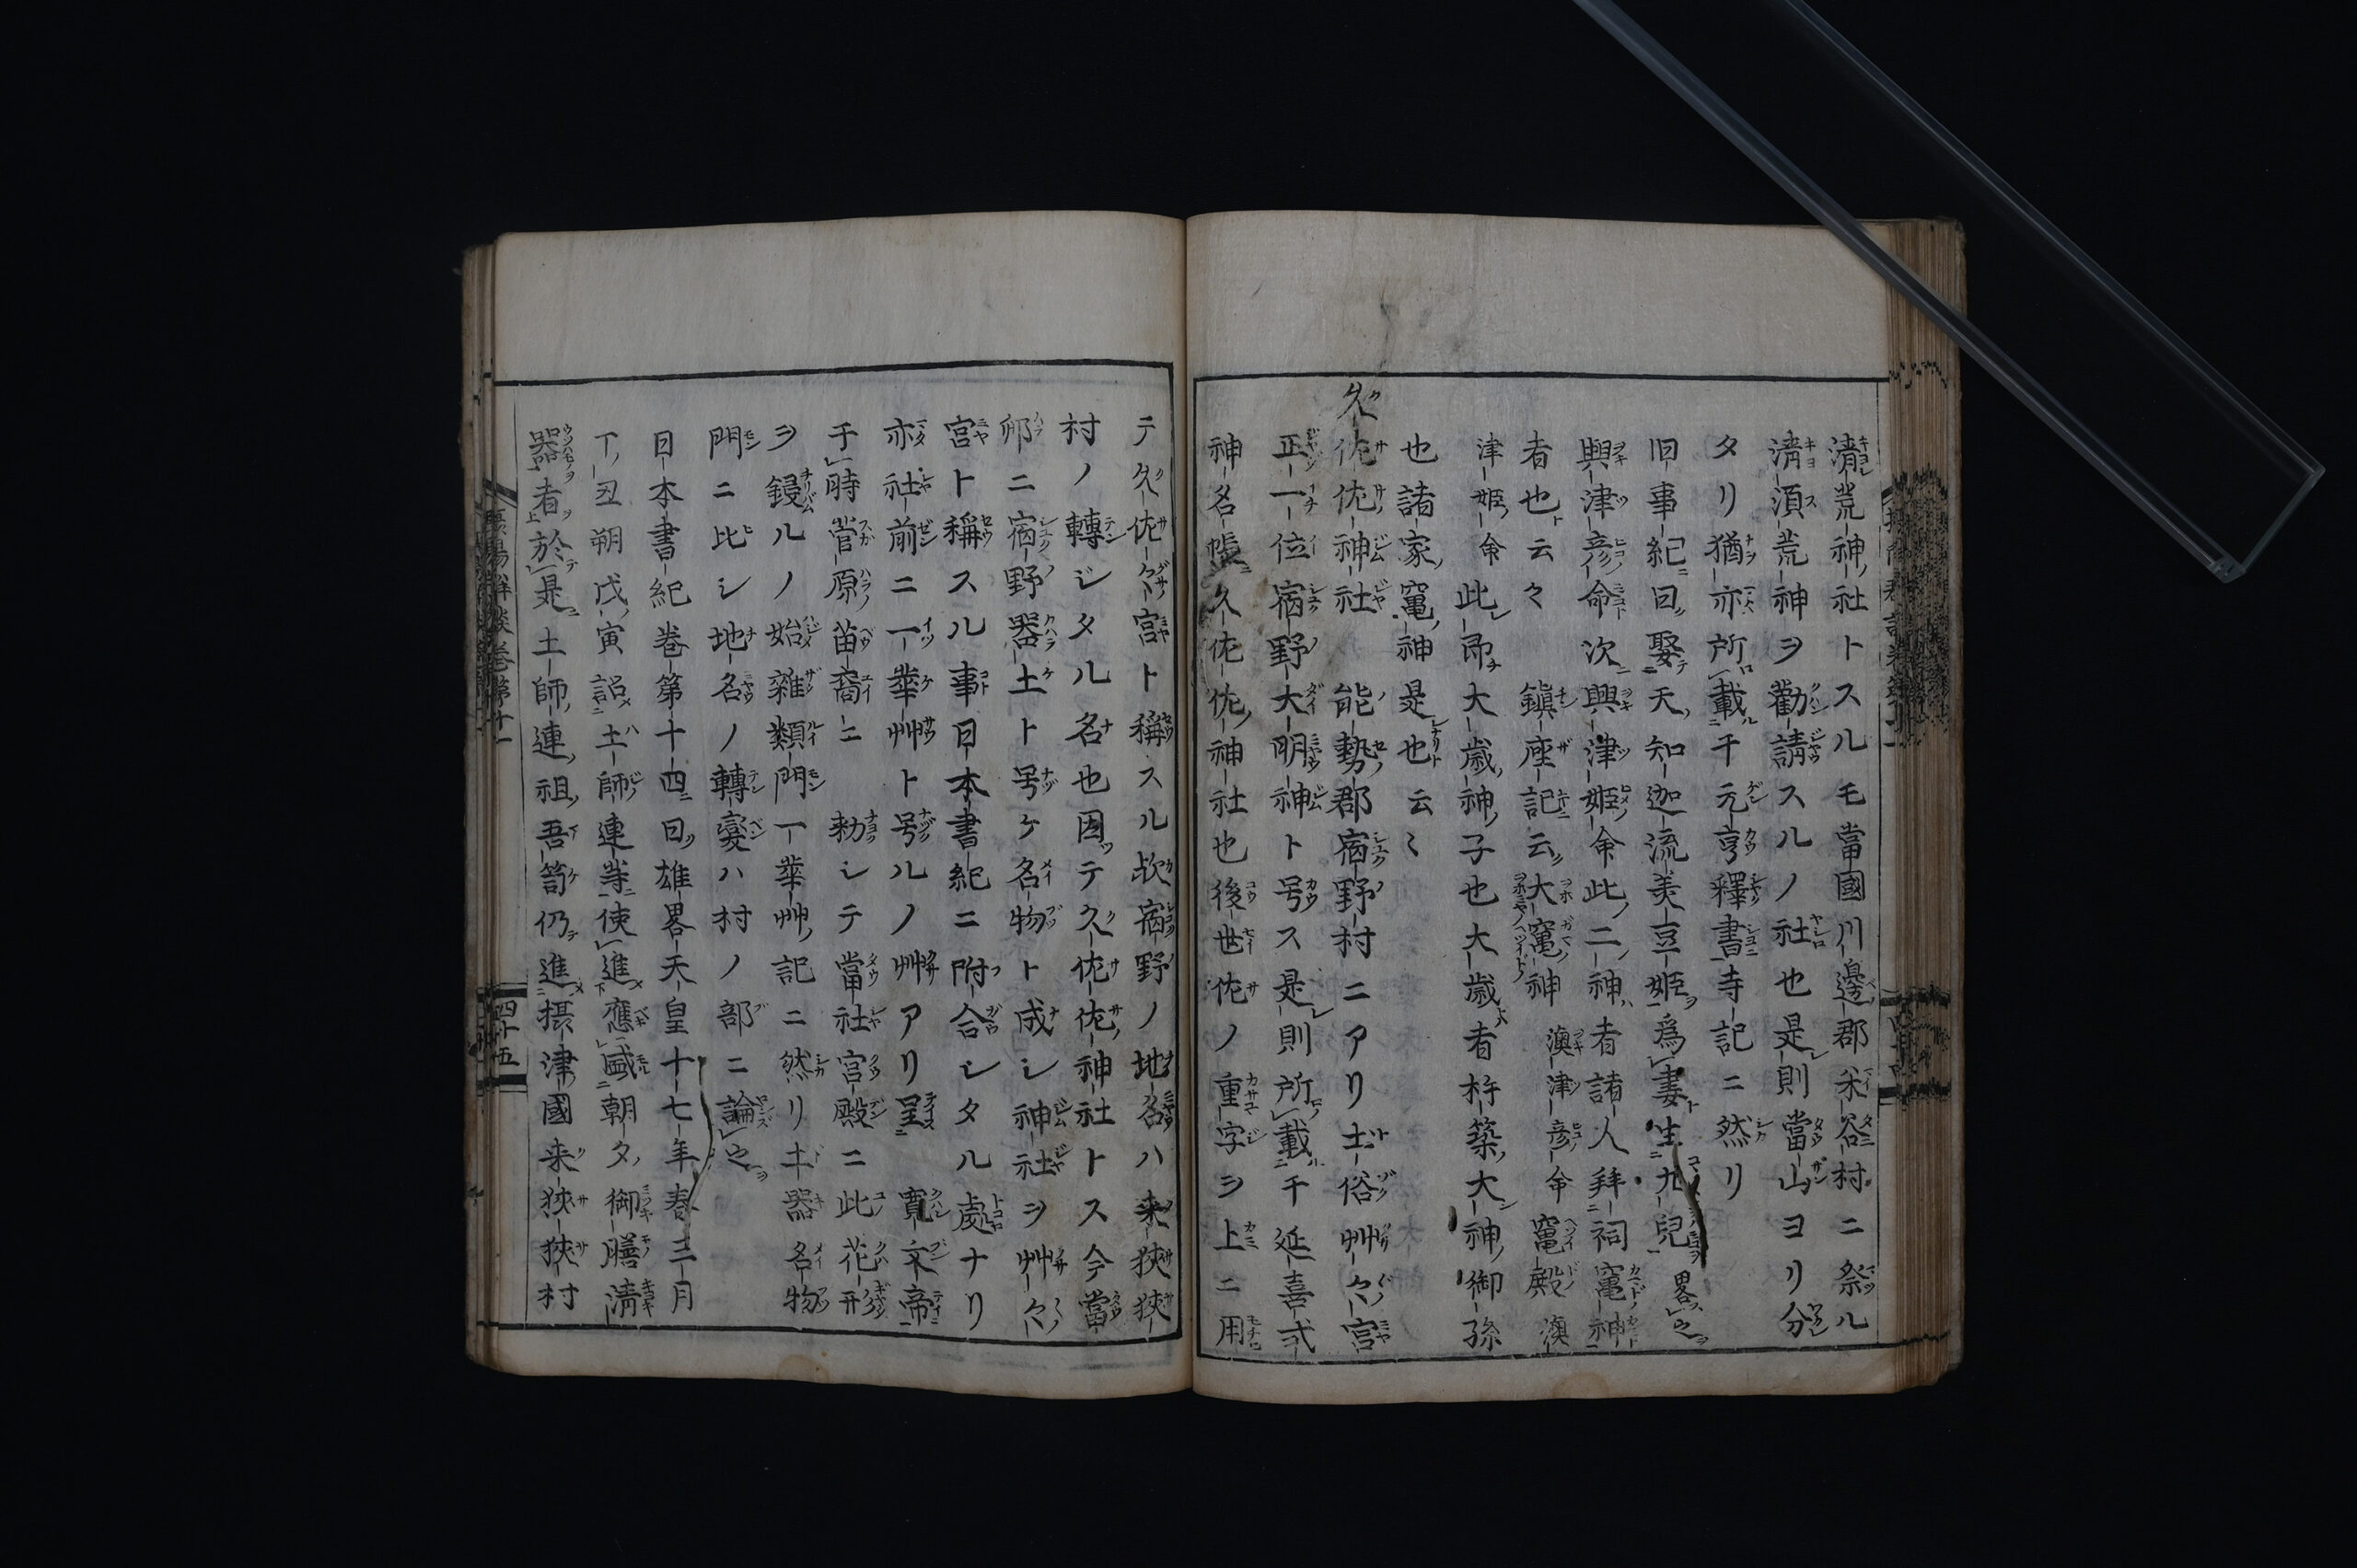 清荒神社トスルモ當國川邊郡米谷村ニ祭ル
清須荒神ヲ勸請スルノ社也是則當山ヨリ分
タリ猶亦所載于元亨釋書寺記ニ然リ
旧事紀曰娶天知迦流美豆姫爲妻生九兒畧之
興津彦命次興津姫命此二神者諸人拜祠竃神
者也云々 鎭座記云大竃神 澳津彦命竃殿 澳
津姫命 此即大歳神子也大歳者杵築大神御孫
也諸家竃神是也云〻
久佐佐神社 能勢郡宿野村ニアリ土俗艸々宮
正一位宿野大明神ト号ス是則所載于延喜式
神名帳久佐佐神社也後世佐ノ重字ヲ上ニ用
テ久佐々宮ト稱スル歟宿野ノ地名ハ来狹狹
村ノ轉ジタル名也因テ久佐佐神社トス今當
邜ニ宿野器土ト号ケ名物ト成シ神社ヲ艸々
宮ト稱スル事日本書紀ニ附合シタル處ナリ
亦社前ニ一華艸ト号ルノ艸アリ呈 寛文帝
于時菅原苗裔ニ 勅シテ當社宮殿ニ此花形
ヲ鋟ルノ始雜類門一華艸記ニ然リ土器名物
門ニ比シ地名ノ轉變ハ村ノ部ニ論之
日本書紀巻第十四曰雄畧天皇十七年春三月
丁丑朔戊寅詔土師連等使進應盛朝夕御膳淸
器者於是土師連祖吾笥仍進摂津國来狹狹村
四十五